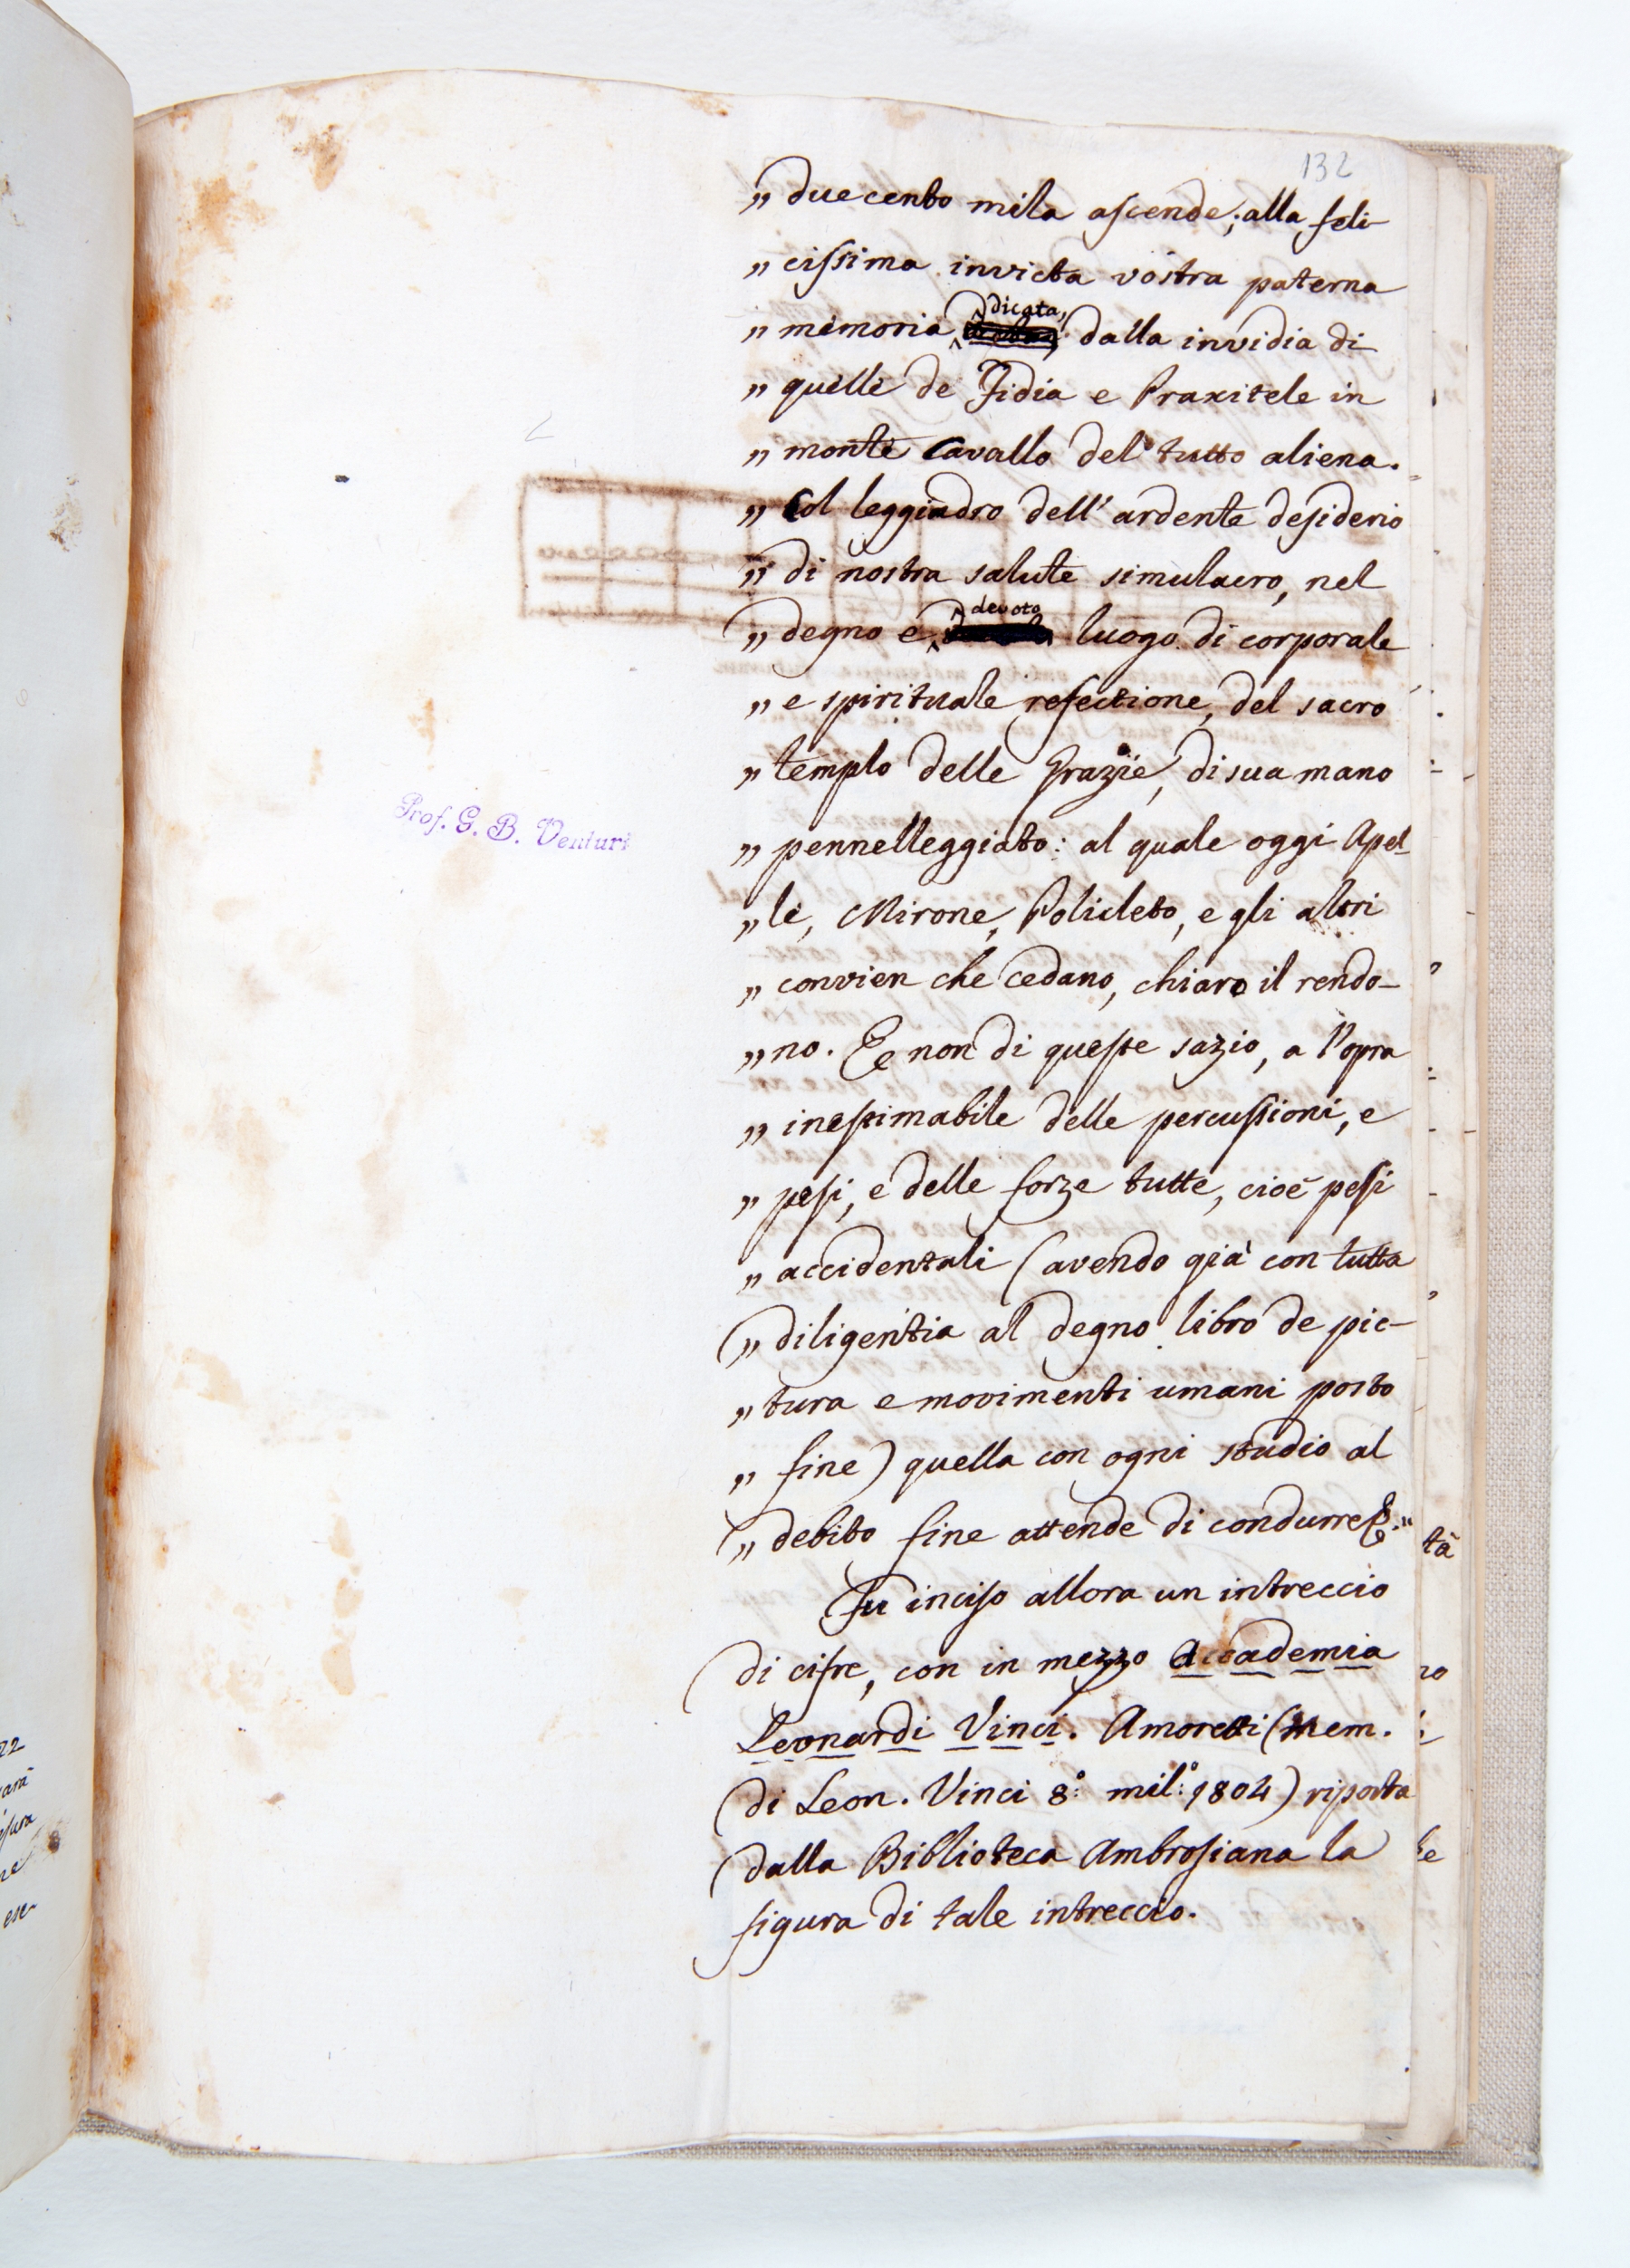 132
„ duecento mila ascende; alla feli-
„ cissima invicta vostra paterna
„ memoria dicata, dalla invidia di
„ quelle de Fidia e Praxitele in
„ monte Cavallo del tutto aliena.
„ Col leggiadro dell' ardente desiderio
„ di nostra salute simulacro, nel
„ degno e devoto luogo di corporale
„ e spirituale refectione, del sacro
„ templo delle Grazie, di sua mano
„ pennelleggiato: al quale oggi Apel-
„ le, Mirone, Policleto, e gli altri
„ convien che cedano, chiaro il rendo-
„ no. E non di queste sazio, a l'opra
„ inestimabile delle percussioni, e
„ pesi, e delle forze tutte, cioè pesi
„ accidentali (avendo già con tutta
„ diligentia al degno libro de pic-
„ tura e movimenti umani posto
„ fine) quella con ogni studio al
„ debito fine attende di condurre &."
Fu inciso allora un intreccio
di cifre, con in mezzo Accademia
Leonardi Vinci. Amoretti (Mem.
di Leon. Vinci 8.° mil.° 1804) riporta
dalla Biblioteca Ambrosiana la
figura di tale intreccio.
Prof. G. B. Venturi